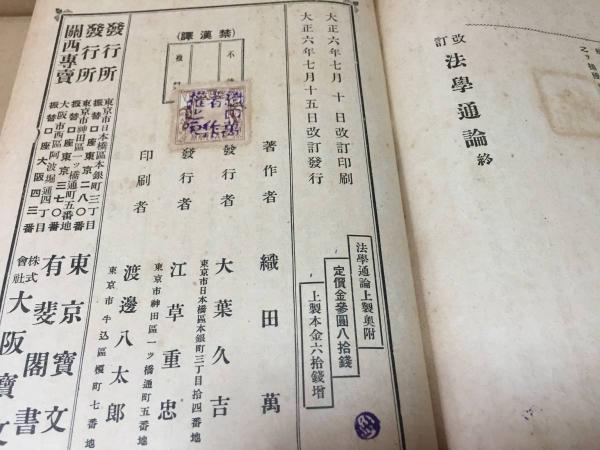 改訂 法學通論 終
大正六年七月十日改訂印刷
大正六年七月十五日改訂發行
法學通論上製奧附
定價金參圓八拾錢
上製本金六拾錢增
(禁漢譯)
不
複
著作者 織田萬
發行者 大葉久吉
東京市日本橋區本銀町三丁目拾四番地
發行者 江草重忠
東京市神田區一ッ橋通町五番地
印刷者 渡邊八太郎
東京市牛込區榎町七番地
發行所 東京寶文
東京市日本橋區本銀町三丁目
振替口座東京二八〇番
發行所 有斐閣書
東京市神田區一ッ橋通町五番地
振替口座東京三七〇番
關西專賣 株式會社 大阪寶文
大阪市西區阿波堀通四丁目
振替口座大阪四三番